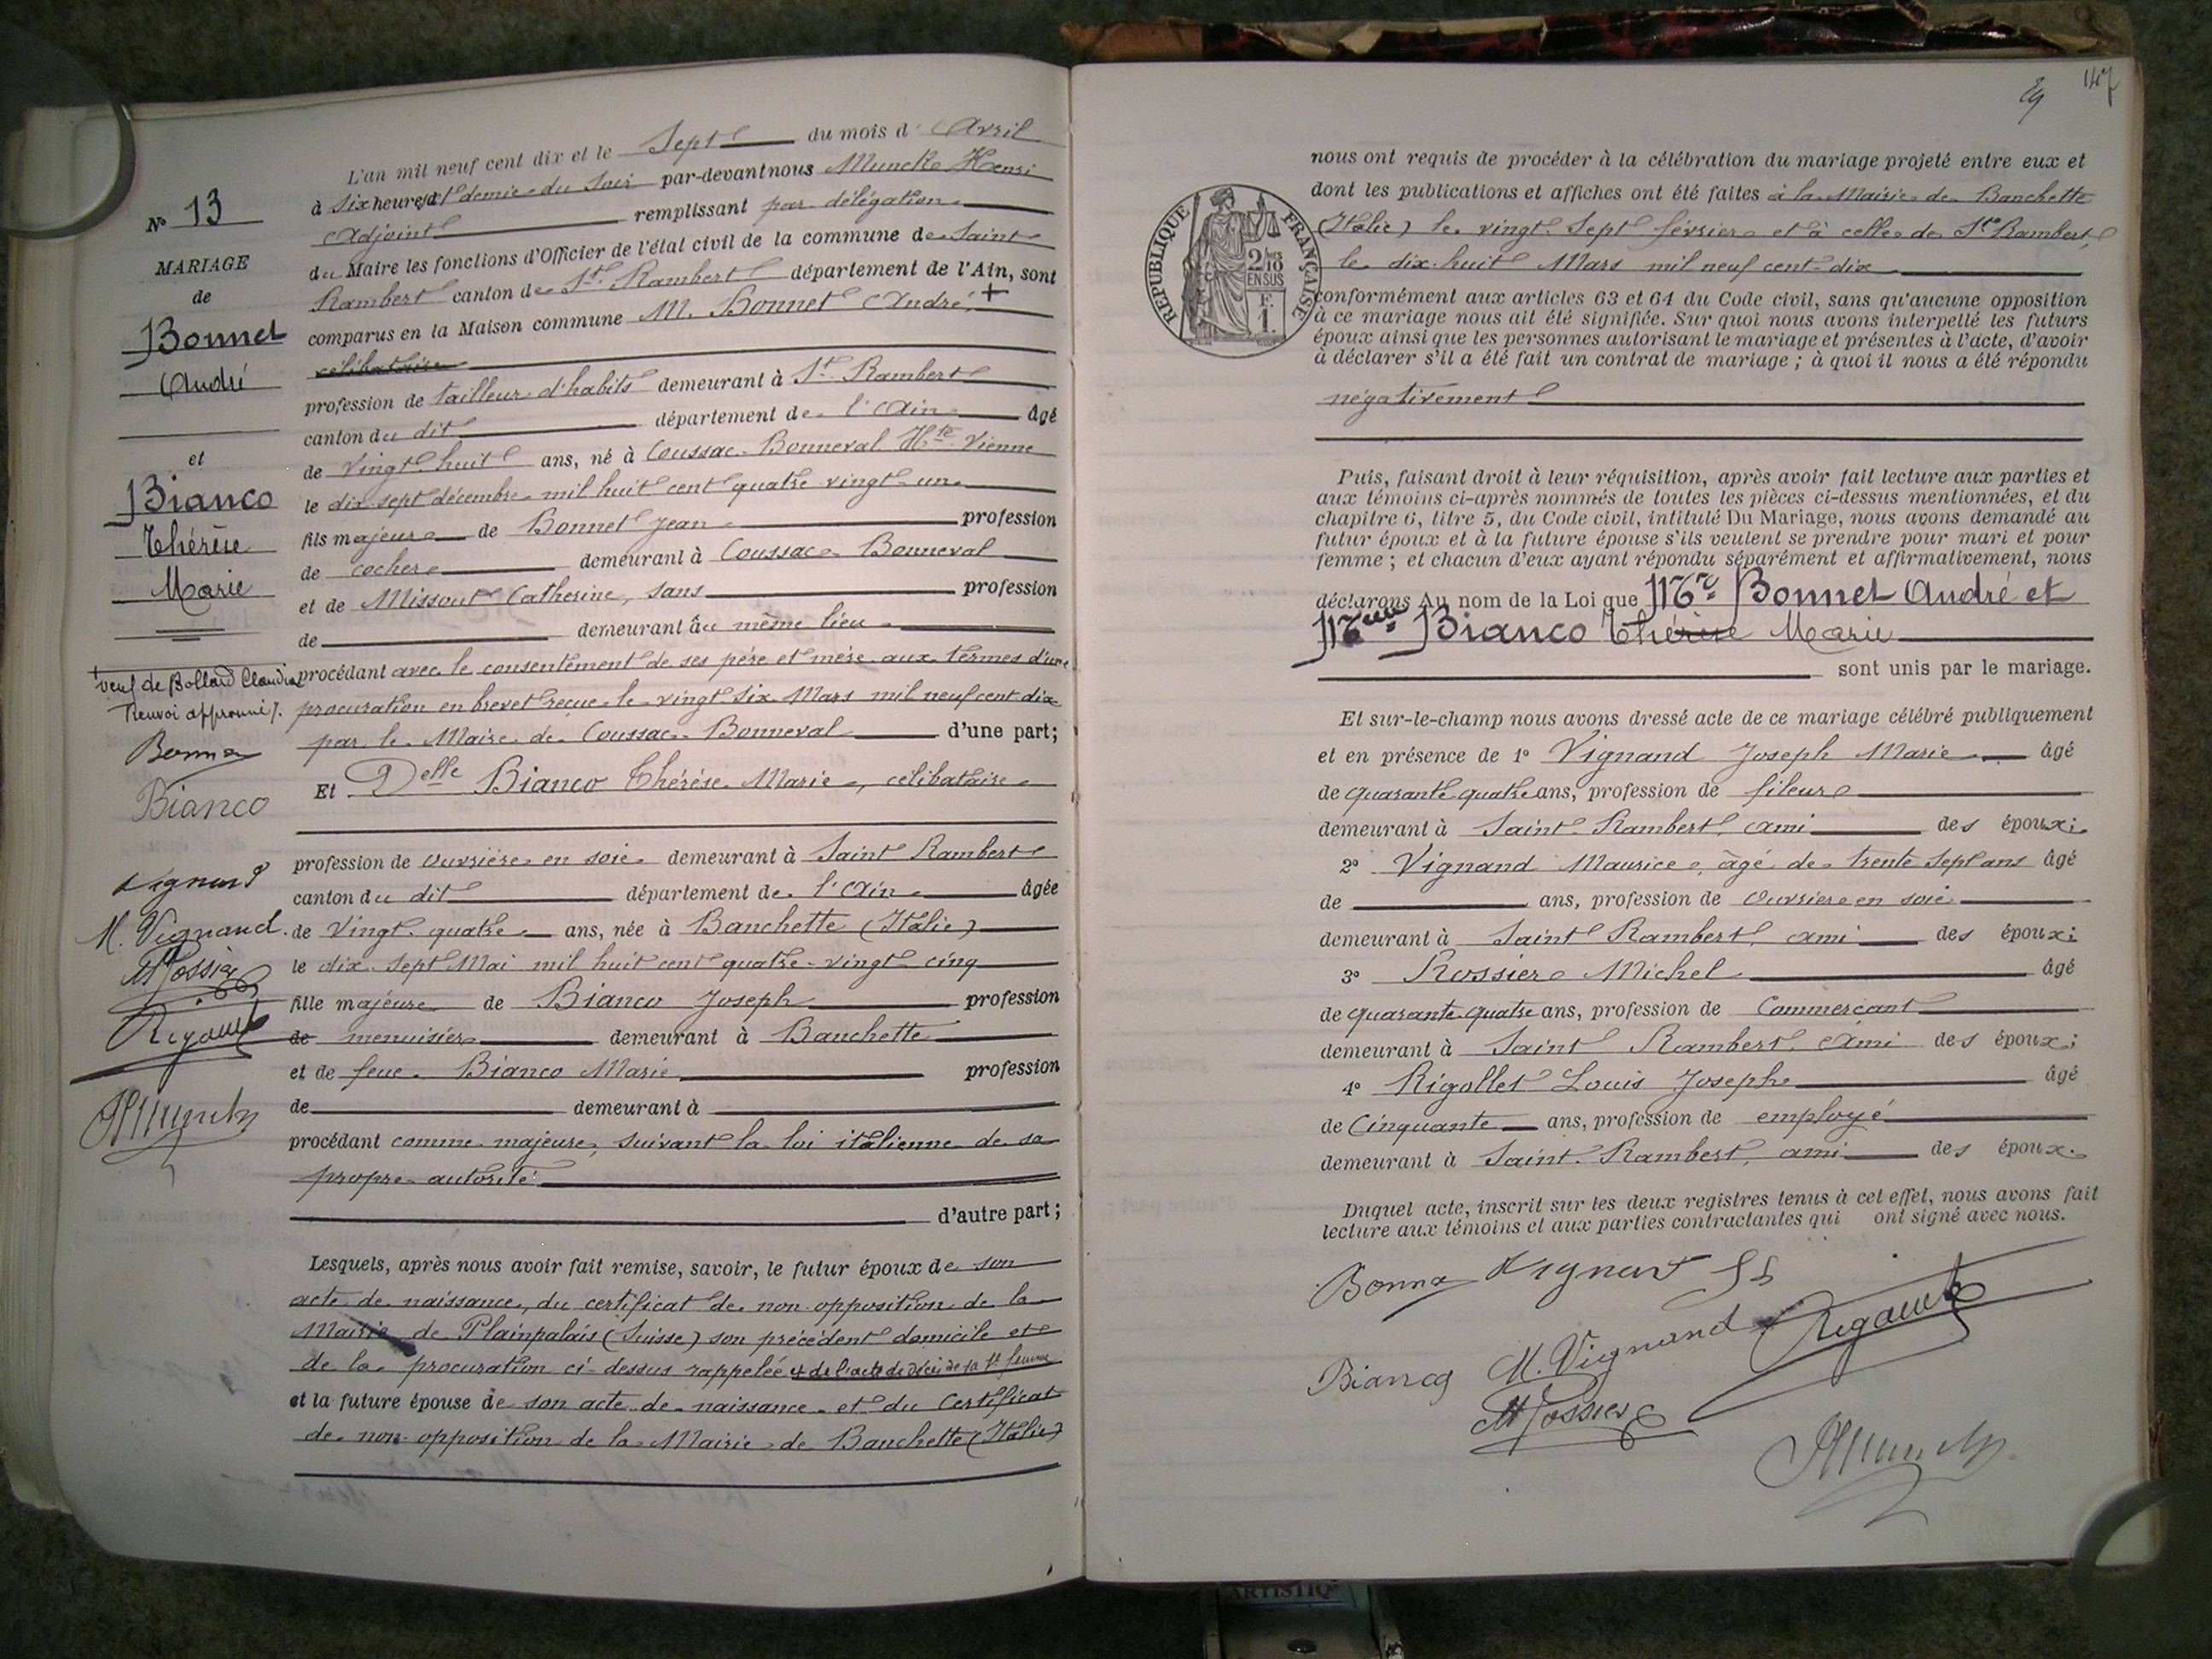 N° 13
MARIAGE
de
Bonnet
André
et
Bianco
Thérèse
Marie
+
veuf de Bollard Claudia
Renvoi approuvé ⁒.
Bonnet
Bianco
Vignand
M. Vignand
L'an mil neuf cent dix et le Sept du mois d'Avril
à six heures et demie du soir par-devant nous Muncke Henri
Adjoint remplissant par délégation
du Maire les fonctions d'Officier de l'état civil de la commune de Saint
Rambert canton de St. Rambert département de l'Ain, sont
comparus en la Maison commune M. Bonnet André, +
célibataire
profession de tailleur d'habits demeurant à St. Rambert
canton du dit département de l'Ain âgé
de Vingt huit ans, né à Coussac-Bonneval Hte Vienne
le dix-sept décembre mil huit cent quatre vingt-un
fils majeur de Bonnet Jean profession
de cocher demeurant à Coussac-Bonneval
et de Missout Catherine, sans profession
de demeurant au même lieu
procédant avec le consentement de ses père et mère aux termes d'une
procuration en brevet reçue le vingt six Mars mil neuf cent dix
par le Maire de Coussac-Bonneval d'une part;
Et Delle Bianco Thérèse Marie, célibataire
profession de ouvrière en soie demeurant à Saint Rambert
canton du dit département de l'Ain âgée
de Vingt-quatre ans, née à Banchette (Italie)
le dix-sept Mai mil huit cent quatre-vingt-cinq
fille majeure de Bianco Joseph profession
de menuisier demeurant à Banchette
et de feue Bianco Marie profession
de demeurant à
procédant comme majeure, suivant la loi italienne de sa
propre autorité
d'autre part;
Lesquels, après nous avoir fait remise, savoir, le futur époux de son
acte de naissance, du certificat de non opposition de la
Mairie de Plainpalais (Suisse) son précédent domicile et
de la procuration ci-dessus rappelée et de l'acte de décès de sa 1e femme
et la future épouse de son acte de naissance et du Certificat
de non-opposition de la Mairie de Banchette (Italie)
147
REPUBLIQUE FRANÇAISE
2/10
EN SUS
F.
1.
nous ont requis de procéder à la célébration du mariage projeté entre eux et
dont les publications et affiches ont été faites à la Mairie de Banchette
(Italie) le vingt-Sept février et à celle de St Rambert,
le dix-huit Mars mil neuf cent-dix
conformément aux articles 63 et 64 du Code civil, sans qu'aucune opposition
à ce mariage nous ait été signifiée. Sur quoi nous avons interpellé les futurs
époux ainsi que les personnes autorisant le mariage et présentes à l'acte, d'avoir
à déclarer s'il a été fait un contrat de mariage; à quoi il nous a été répondu
négativement
Puis, faisant droit à leur réquisition, après avoir fait lecture aux parties et
aux témoins ci-après nommés de toutes les pièces ci-dessus mentionnées, et du
chapitre 6, titre 5, du Code civil, intitulé Du Mariage, nous avons demandé au
futur époux et à la future épouse s'ils veulent se prendre pour mari et pour
femme; et chacun d'eux ayant répondu séparément et affirmativement, nous
déclarons Au nom de la Loi que Mr Bonnet André et
Melle Bianco Thérèse Marie
sont unis par le mariage.
Et sur-le-champ nous avons dressé acte de ce mariage célébré publiquement
et en présence de 1° Vignand Joseph Marie âgé
de quarante quatre ans, profession de fileur
demeurant à Saint-Rambert, ami des époux;
2° Vignand Maurice, âgé de trente sept ans âgé
de ans, profession de Ouvrier en soie
demeurant à Saint Rambert, ami des époux;
3° Rossier Michel âgé
de quarante-quatre ans, profession de Commerçant
demeurant à Saint Rambert, Ami des époux;
4° Rigollet Louis Joseph âgé
de Cinquante ans, profession de employé
demeurant à Saint-Rambert, ami des époux.
Duquel acte, inscrit sur les deux registres tenus à cet effet, nous avons fait
lecture aux témoins et aux parties contractantes qui ont signé avec nous.
Bonnet Vignand
Bianco M. Vignand
ARTISTIQ